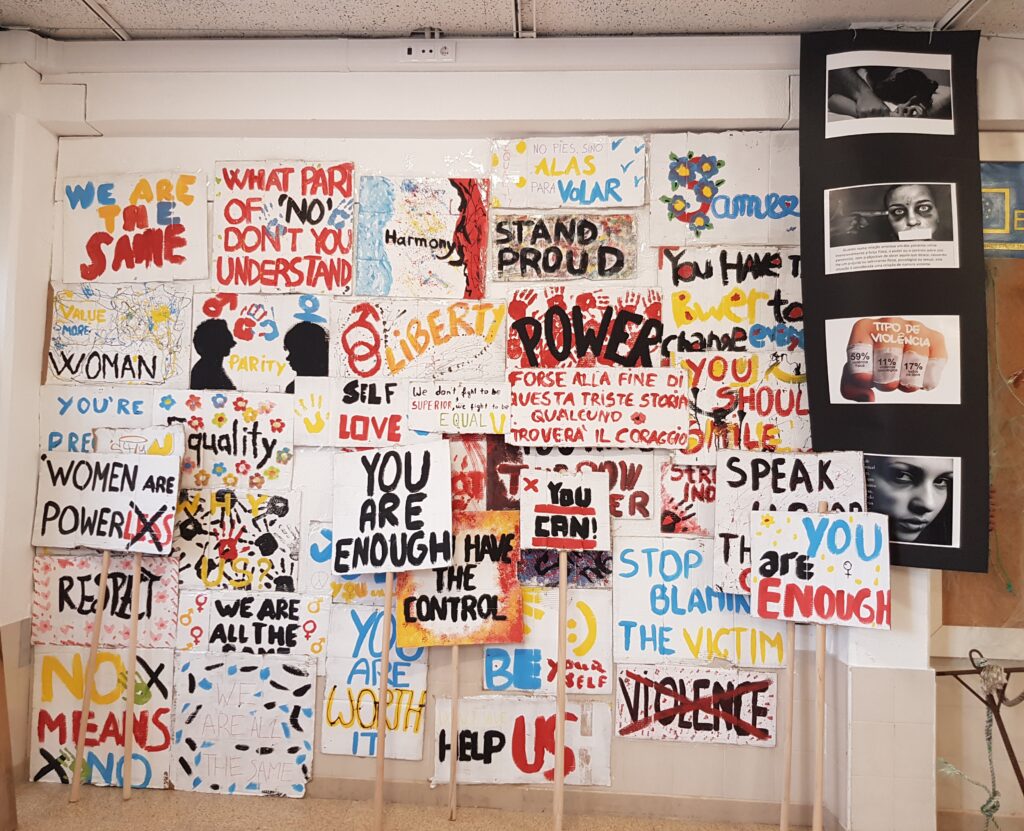 WE ARE
THE
SAME
WHAT PART
OF 'NO'
DON'T YOU
UNDERSTAND
Harmony
NO PIES, SINO
ALAS
PARA VOLAR
STAND
PROUD
YOU HAVE
Power to
change
VALUE
MORE
WOMAN
PARITY
LIBERTY
POWER
YOU
SHOUL
SMILE
YOU'RE
Equality
SELF
LOVE
We don't fight to be
SUPERIOR, we fight to be
EQUAL
FORSE ALLA FINE DI
QUESTA TRISTE STORIA
QUALCUNO
TROVERÀ IL CORAGGIO
WOMEN ARE
POWERLESS
WHY
US?
YOU
ARE
ENOUGH
YOU
CAN!
SPEAK
HAVE
THE
CONTROL
YOU
are
ENOUGH
STOP
BLAMIN
THE VICTIM
RESPECT
WE ARE
ALL THE
YOU
ARE
WORTH
IT
BE YOUR
SELF
NO
MEANS
NO
WE
ARE ALL
THE SAME
HELP US
VIOLENCE
TIPO DE
VIOLÊNCIA
59%
11%
17%